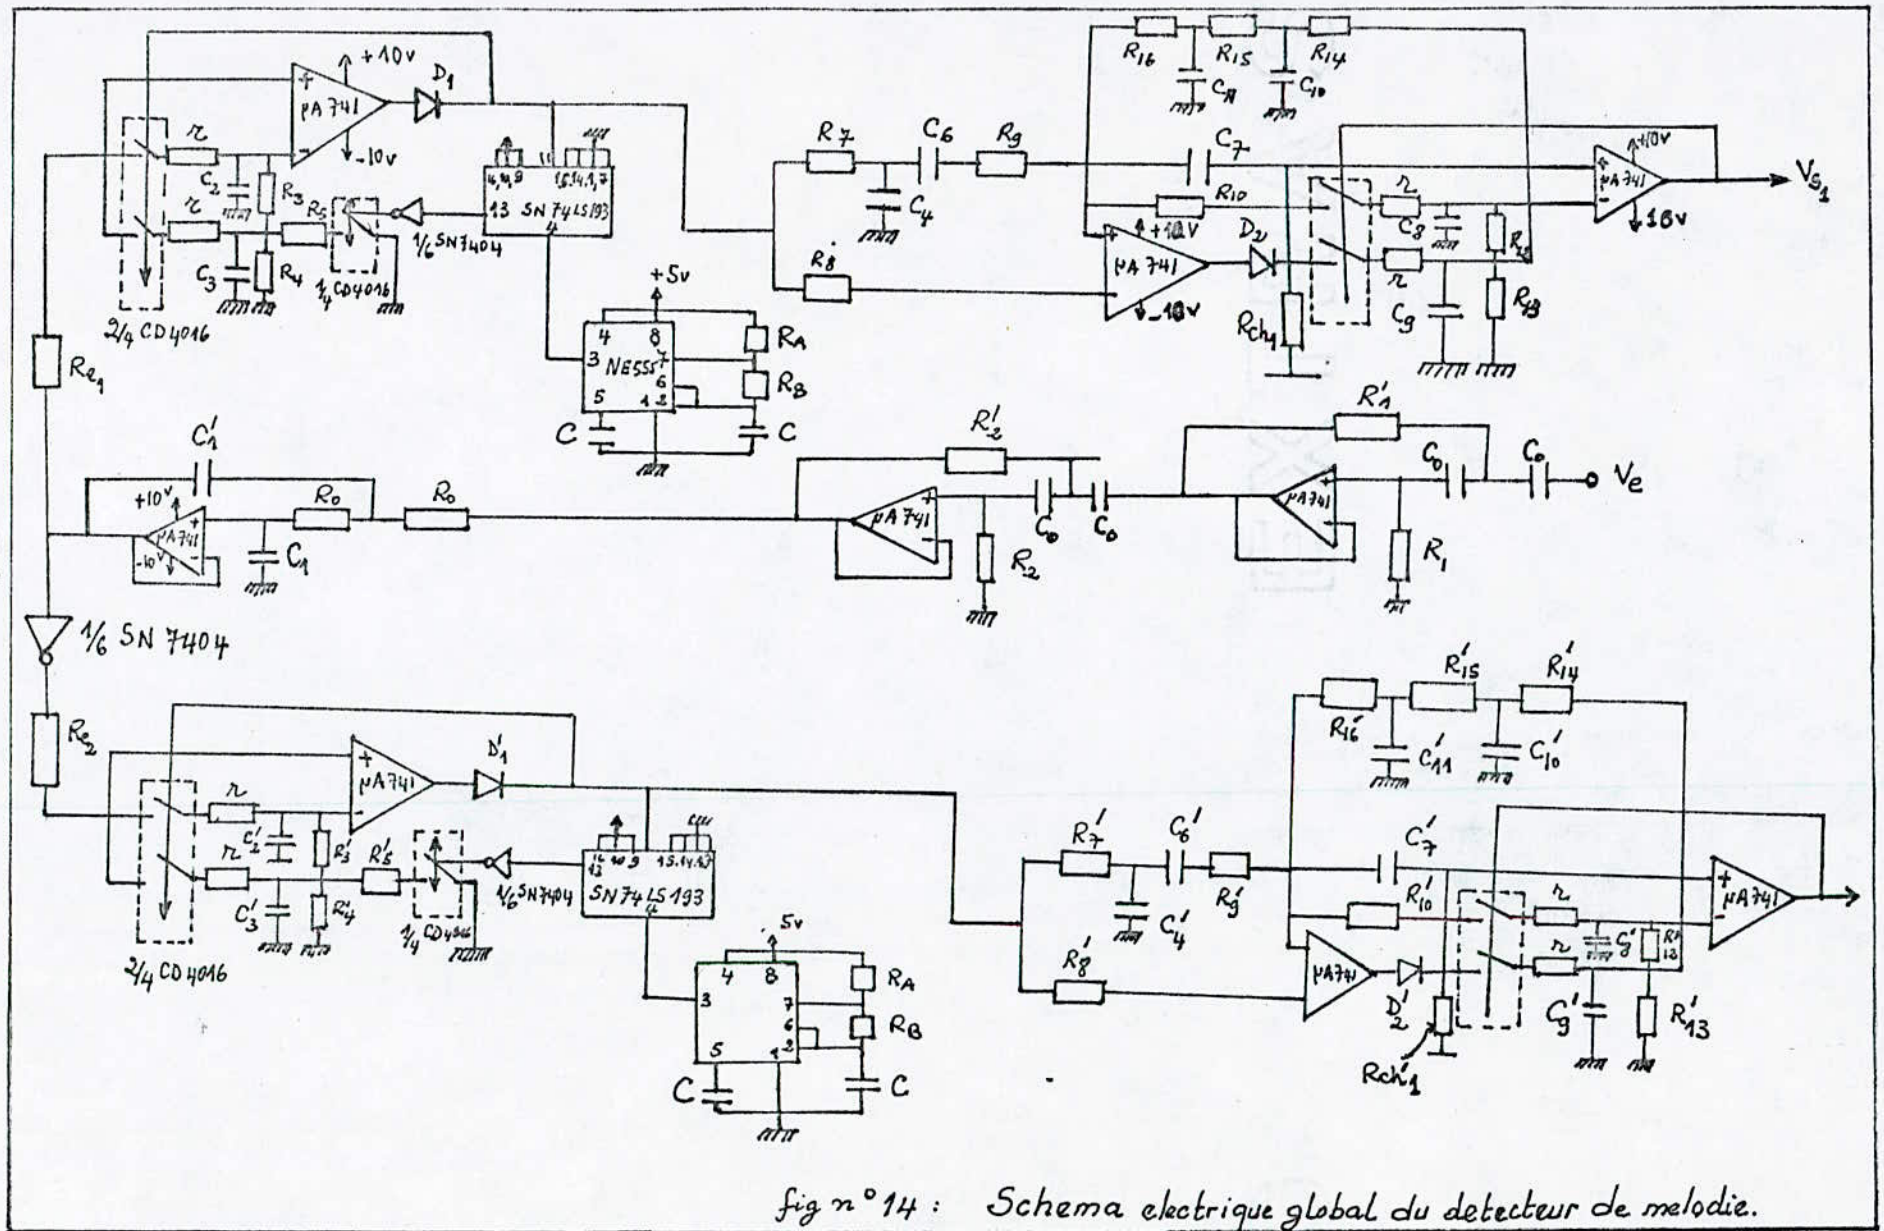 R16
R15
R14
C11
C10
+10v
D1
r
μA741
-10v
C2
R3
r
R5
C3
R4
1/4 CD4016
2/4 CD4016
1/6 SN7404
11
15.14.1,7
13
SN74LS193
4
+5v
4
8
3
NE555
7
6
5
1
2
RA
RB
C
C
R7
C6
R9
C4
R8
C7
R10
+10v
μA741
-10v
D2
Rch1
r
C8
r
C9
R13
+10v
μA741
-10v
Vs1
Re1
C'1
+10v
μA741
-10v
R0
R0
C1
R'2
μA741
C0
C0
R2
R'1
μA741
C0
C0
Ve
R1
1/6 SN7404
Re2
D'1
μA741
r
C'2
R'3
r
R'5
C'3
R'4
1/4 CD4016
2/4 CD4016
1/6 SN7404
SN74LS193
4
5v
4
8
3
7
6
5
1
2
RA
RB
C
C
R'7
C'6
R'9
C'4
R'8
R'16
R'15
R'14
C'11
C'10
C'7
R'10
μA741
D'2
Rch'1
r
r
C'9
R'13
μA741
fig n° 14 : Schema electrique global du detecteur de melodie.